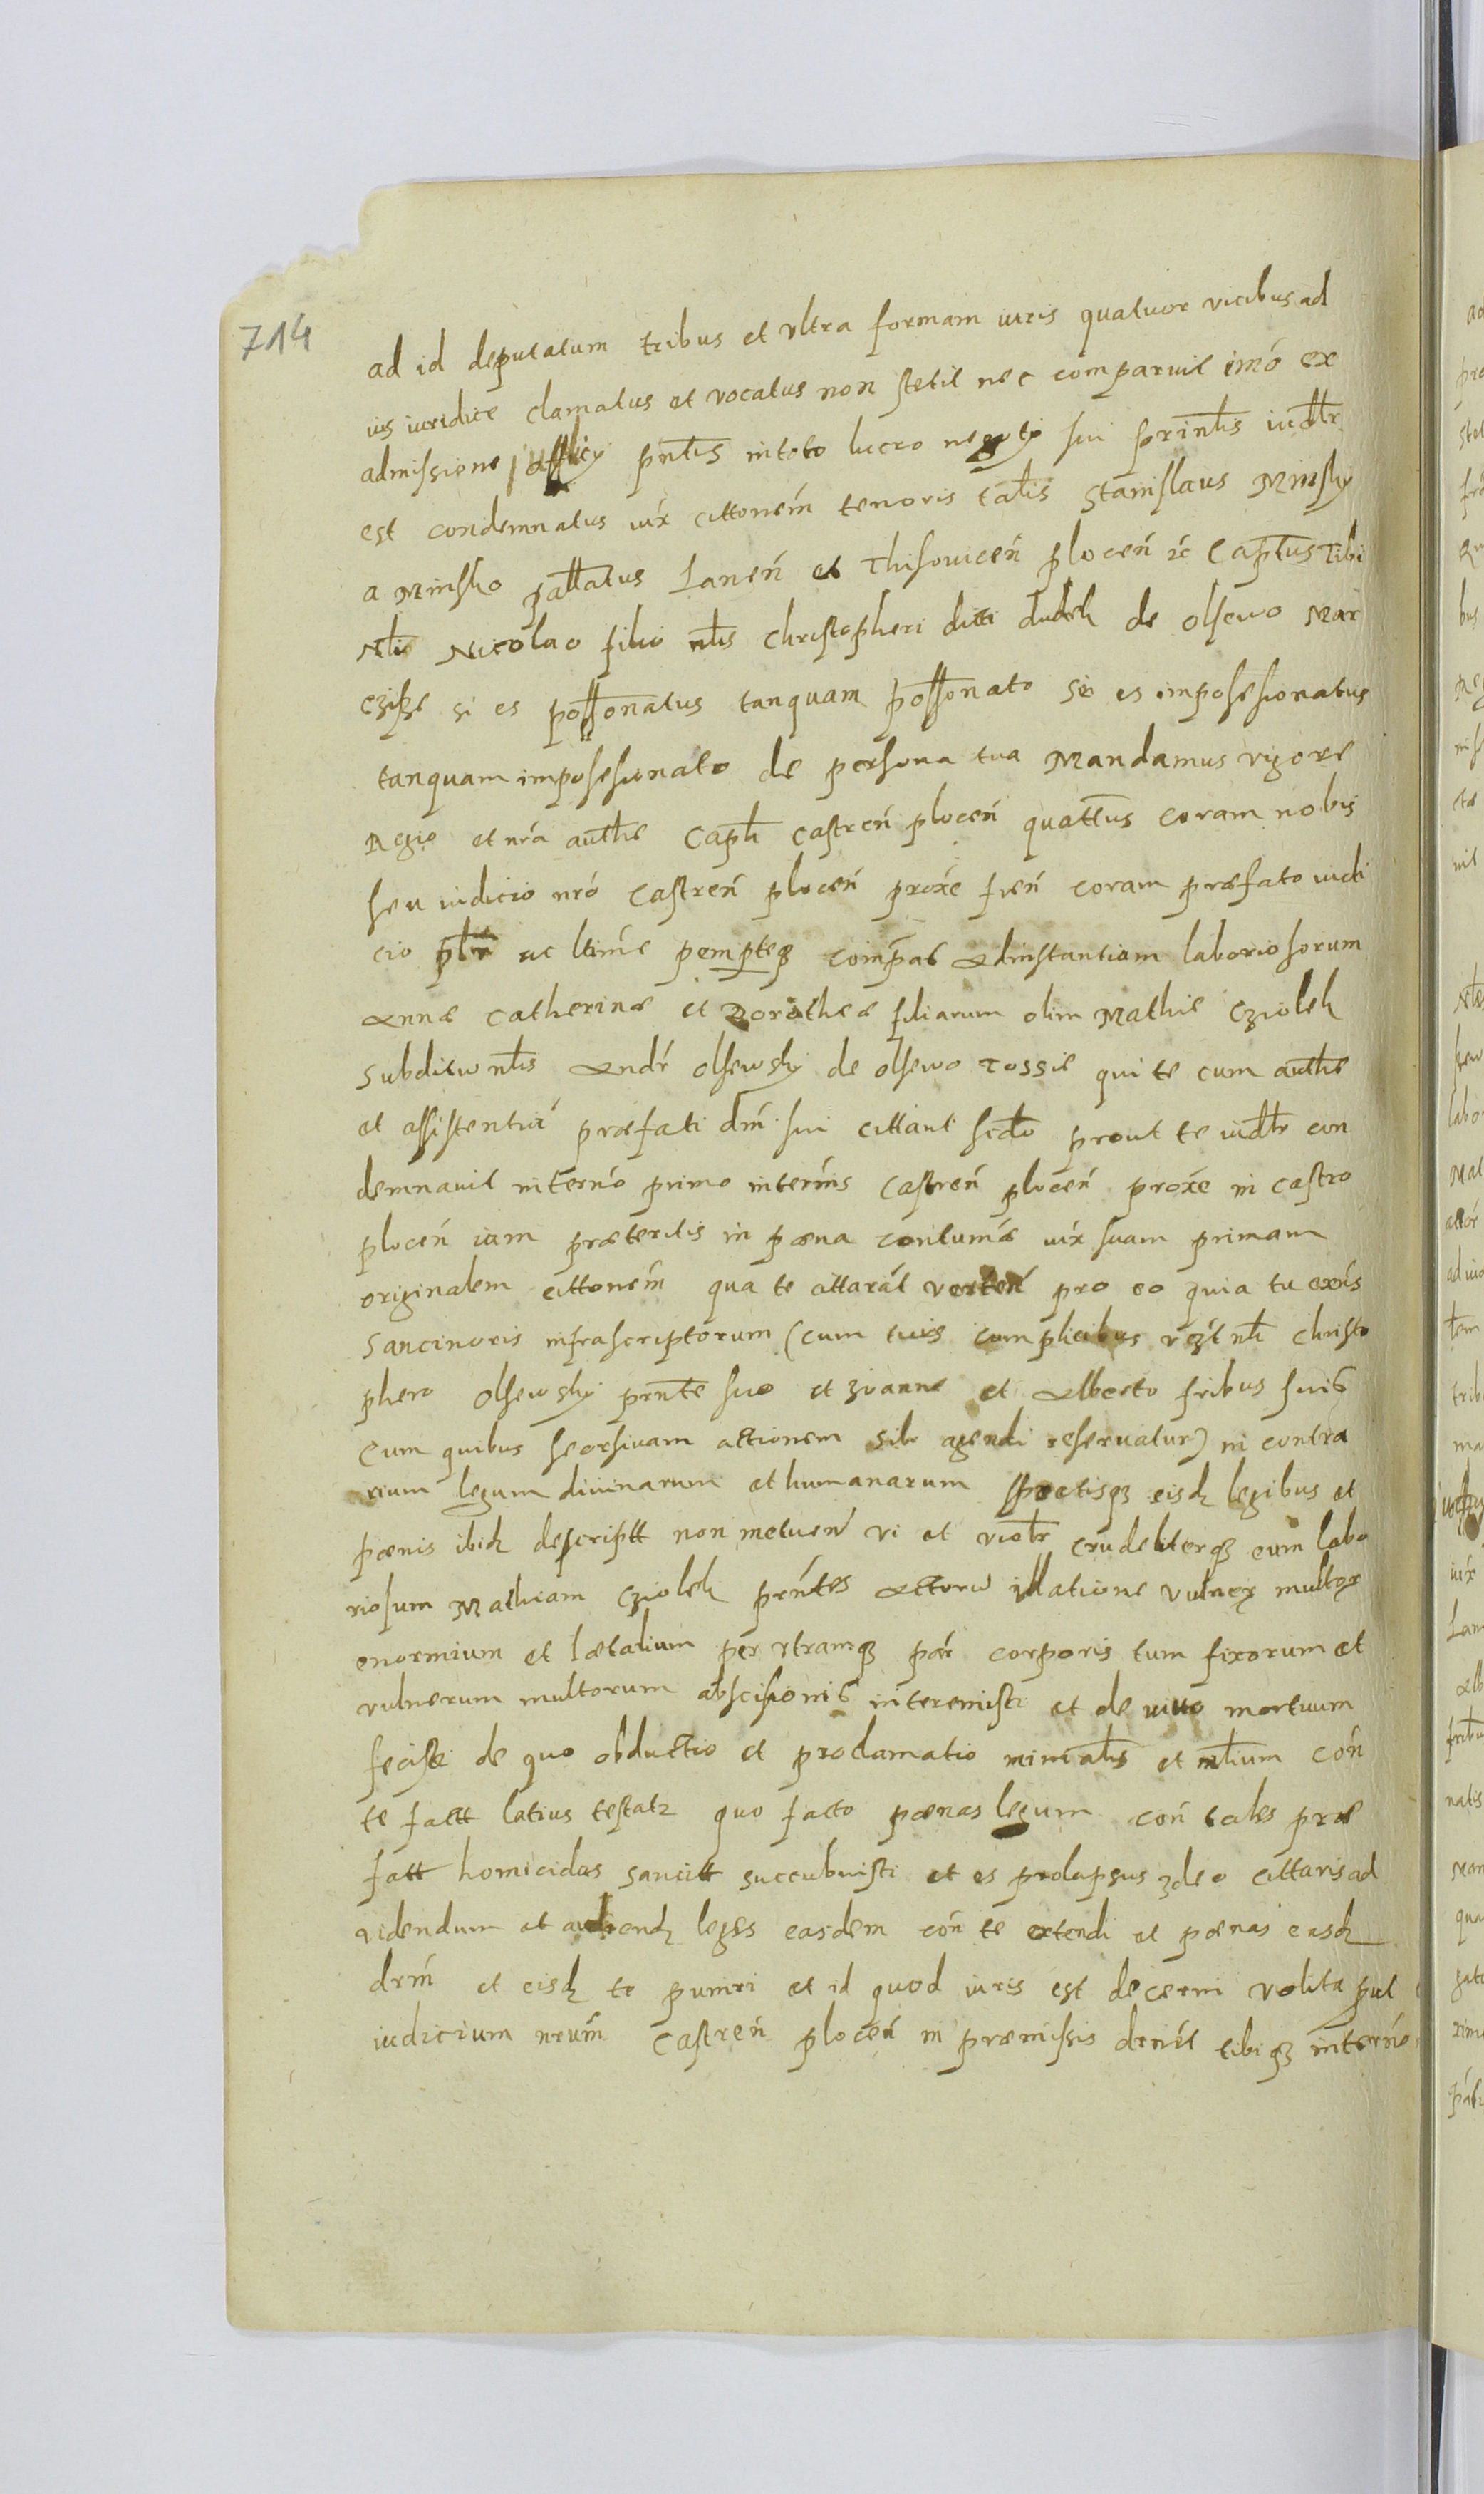 714
ad id deputatum tribus et vltra formam iuris quatuor vicibus ad
ius iuridice clamatus et vocatus non stetit nec comparuit imó ex
admissione officij pñtis in toto lucro negotij sui prinłis iudłr
est condemnatus iux cittoneḿ tenoris talis Stanislaus Minsky
a Minsko pałłatus Laneń et Thisouiceń ploceń zc Captus Tibi
Nłi Nicolao filio nłis Christopheri dicti dudek de olsewo Mar
cziße si es possonatus tanquam possonato Si es impossesionatus
tanquam impossesionato de persona tua Mandamus vigore
Regio et nrá autħe Capłi castreń ploceń quattus coram nobis
seu iudicio nró Castreń ploceń proxé fień coram præfato iudi
cio płr ac ltimé pempteq compas Ad instantiam laboriosorum
Annæ Catherinæ et Dorotheæ filiarum olim Mathie Cziolek
Subditū nłis Andŕ olsewsky de olsewo Tossie qui te cum autħe
et assistentiá præfati dnĩ sui cittant scdo prout te iudłr con
demnauit in terńo primo in terḿis Castreń ploceń proxé in castro
ploceń iam præteritis in pæna contumæ iux suam primam
originalem cittoneḿ qua te cittarát verteń pro eo quia tu exńs
Sancinoris infrascriptorum (cum tuis complicibus vczt nłi Christo
phero Olsewsky prnte suo et Joanne et Alberto fribus suis
Cum quibus seorsiuam actionem sibi agendi reseruatur) in contra
rium legum diuinarum et humanarum spretisq3 eisdȝ legibus et
pænis ibidȝ descriptt non metueń vi et viołr crudeliterq3 eum labo
riosum Mathiam Cziolek prńtes Actorū illatione vulneȝ multoȝ
enormium et lætalium per vtramq3 par corporis tum fixorum et
vulnerum multorum abscisionis interemisti et de viuo mortuum
fecisti de quo obductio et proclamatio miniałis et nłium coń
te factt latius testatr quo facto pænas legum coń tales præ
fatt homicidas sancitt succubuisti et es prolapsus Ideo cittaris ad
videndum et audiendȝ leges easdem coń te extendi et pænas easdȝ
drnĩ et eisdȝ te puniri et id quod iuris est decerni volita put
iudicium nrum Castreń ploceń in præmissis drnit tibiq3 in terńo